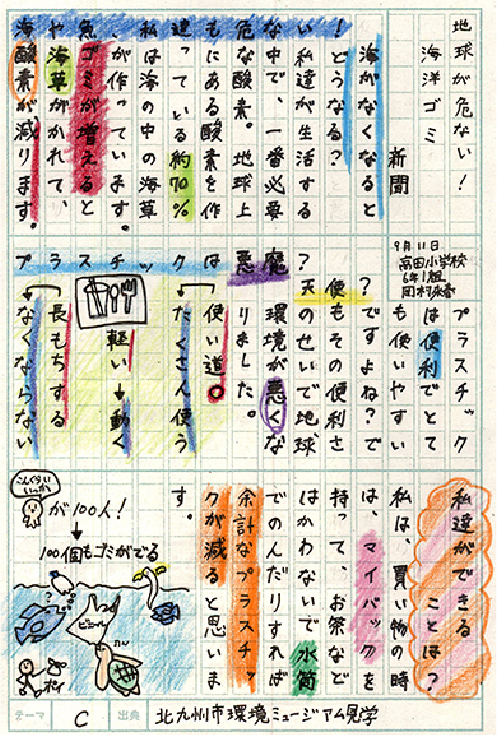 地球が危ない！
海洋ゴミ
新聞
海や魚、私達も危ない！
海がなくなると
どうなる？
私達が生活する
中で、一番必要
な酸素。地球上
にある酸素を作
っている約70%
は海の中の海草
が作っています。
ゴミが増えると
海草がかれて、
酸素が減ります。
9月11日
高田小学校
6年1組
プラスチックは悪魔？
プラスチック
は便利でとて
も使いやすい
？ですよね？で
便もその便利さ
天のせいで地球
環境が悪くな
りました。
使い道。
たくさん使う
軽い→動く
長もちする
なくならない
私達ができる
ことは？
私は、買い物の時
は、マイバックを
持って、お茶など
はかわないで水筒
でのんだりすれば
余計なプラスチッ
クが減ると思いま
す。
こんぐらい
いっか
が100人！
100個もゴミがでる
ビニール
ポイ
テーマ C 出典 北九州市環境ミュージアム見学